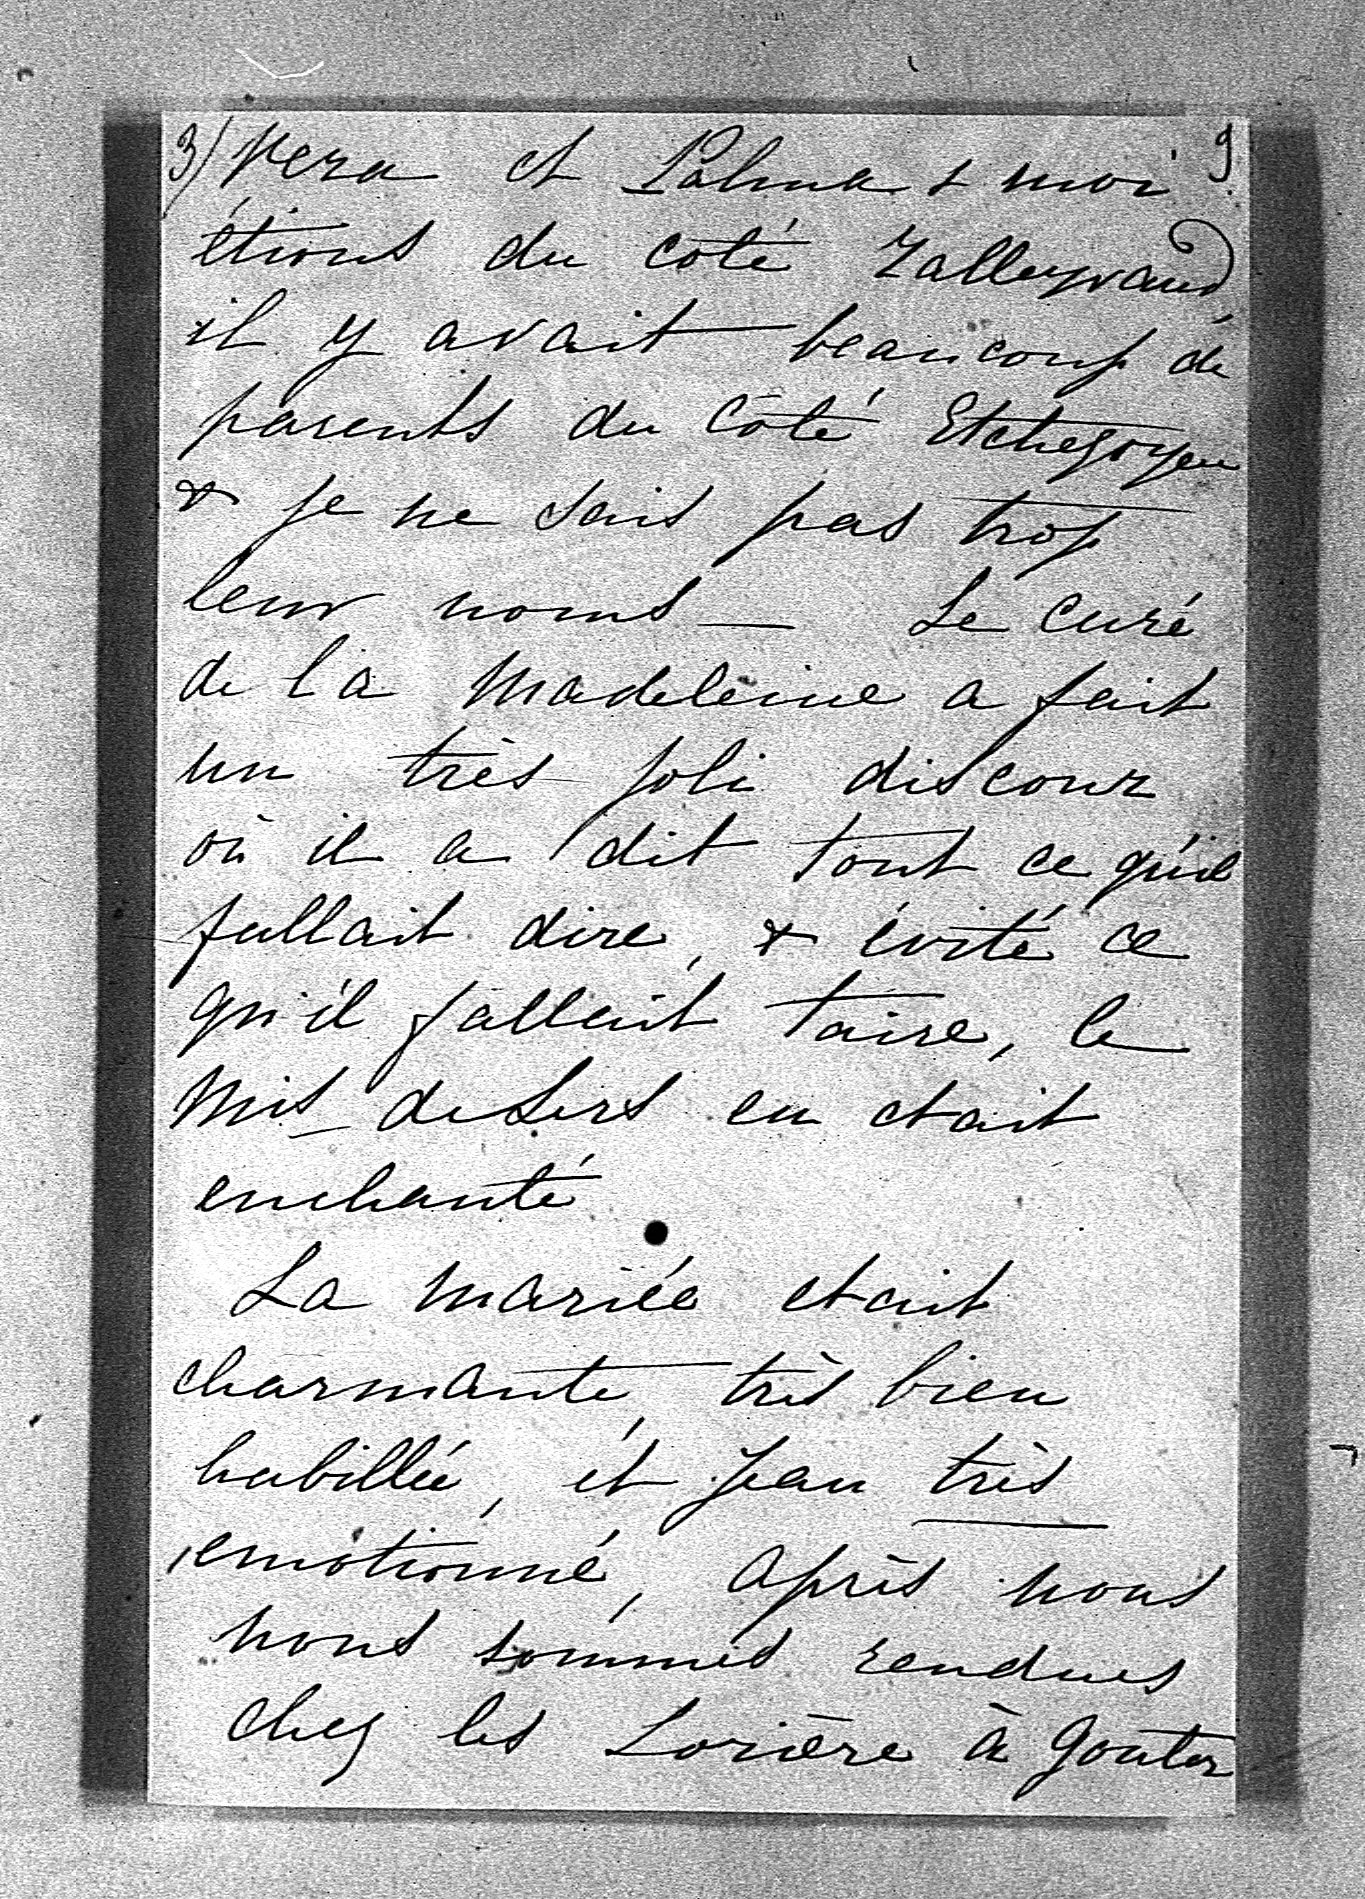 3/ Vera et Palma & moi 9
étions du coté Talleyrand
il y avait beaucoup de
parents du Côté Etchegoyen
& je ne sais pas trop
leur noms — Le Curé
de la Madeleine a fait
un très joli discour
où il a dit tout ce qu'il
fallait dire, & évité ce
qu'il fallait taire, le
Mis de Lers en etait
enchanté
La mariée etait
charmante, très bien
habillée, et Jean très
emotionné, après nous
nous sommes rendues
chez les Lorière à Gouter